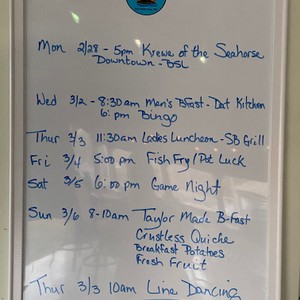 Mon 2/28 - 5pm Krewe of the Seahorse
Downtown - BSL
Wed 3/2 - 8:30am Men's Bfast - Dat Kitchen
6:pm Bingo
Thur 3/3 11:30am Ladies Luncheon - SB Grill
Fri 3/4 5:00pm Fish Fry/Pot Luck
Sat 3/5 6:00pm Game Night
Sun 3/6 8-10am Taylor Made B-Fast
Crustless Quiche
Breakfast Potatoes
Fresh Fruit
Thur 3/3 10am Line Dancing